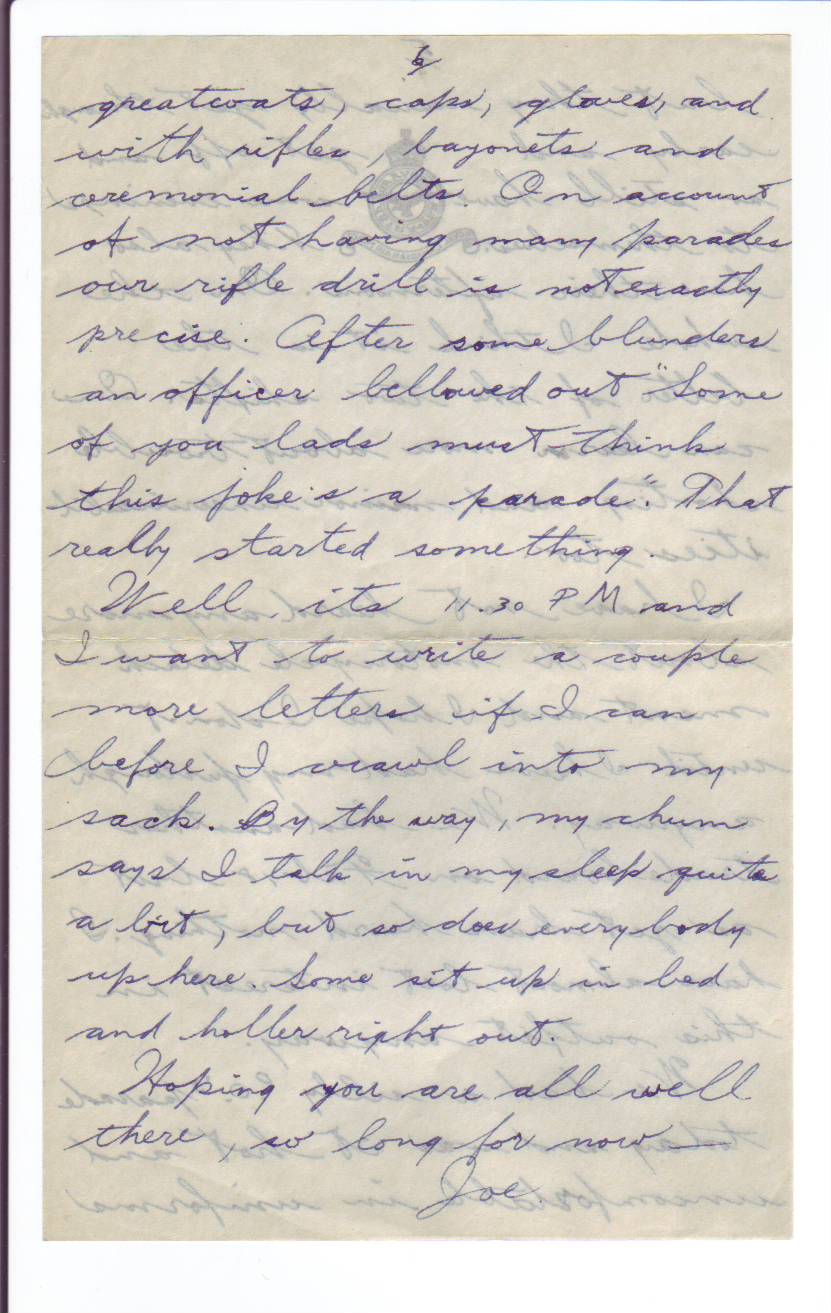 6
greatcoats, caps, gloves, and
with rifles, bayonets and
ceremonial belts. On account
of not having many parades
our rifle drill is not exactly
precise. After some blunders
an officer bellowed out "Some
of you lads must think
this joke's a parade". That
really started something.
Well, its 11.30 PM and
I want to write a couple
more letters if I can
before I crawl into my
sack. By the way, my chum
says I talk in my sleep quite
a bit, but so does everybody
up here. Some sit up in bed
and holler right out.
Hoping you are all well
there, so long for now
Joe.